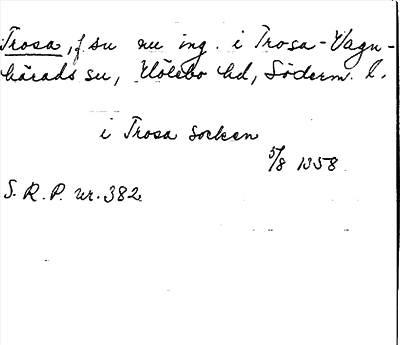 Trosa, f su nu ing. i Trosa-Vagn-
härads su, Hölebo hd, Söderm. l.
i Trosa socken
5/8 1358
S.R.P. nr. 382